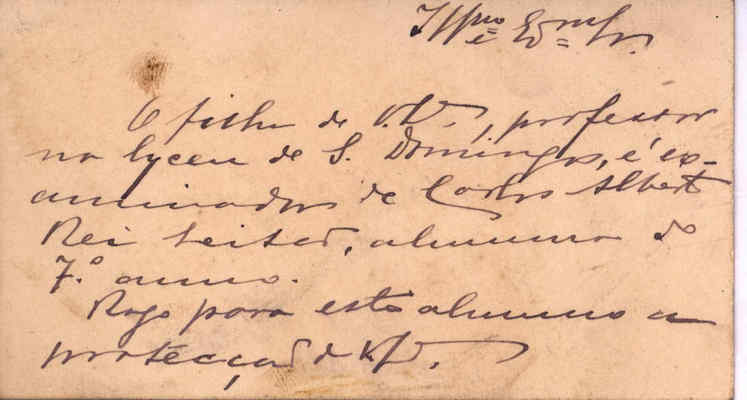 Illmo e Exmo Sr.
O filho de V. , professor
no lyceu de S. Domingos, é ex-
aminador de Carlos Albert
Rei Leitão, alumno do
7.º anno.
Rogo para este alumno a
protecção de V.